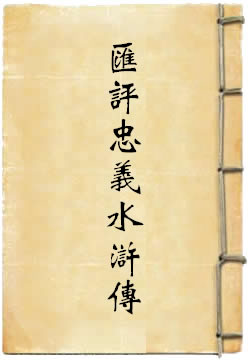 匯評忠義水滸傳